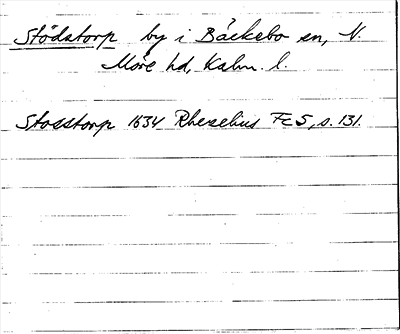 Stödstorp by i Bäckebo sn, N.
Möre hd, Kalm. l.
Stosstorp 1634 Rhezelius FCS, s. 131.